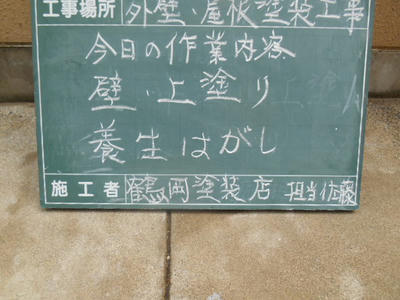 工事場所 外壁・屋根塗装工事
今日の作業内容
壁・上塗り
養生はがし
施工者 鶴岡塗装店 担当佐藤